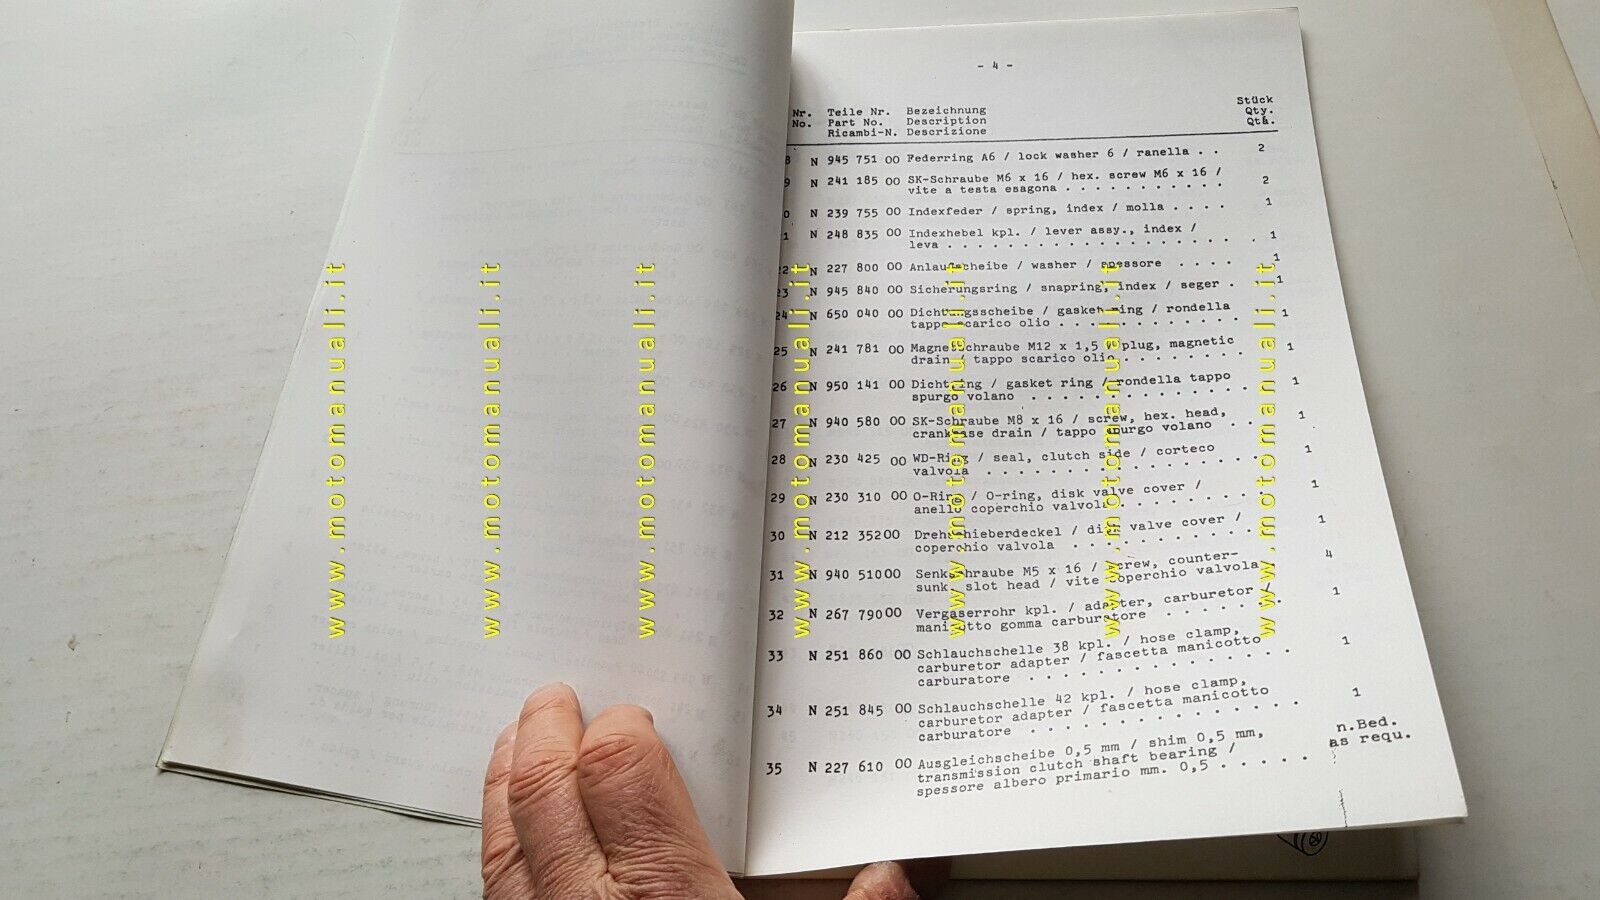 - 4 -
Stück
Nr. Teile Nr. Bezeichnung Qty.
No. Part No. Description Qtà.
Ricambi-N. Descrizione
8 N 945 751 00 Federring A6 / lock washer 6 / ranella . . 2
9 N 241 185 00 SK-Schraube M6 x 16 / hex. screw M6 x 16 /
vite a testa esagona . . . . . . . . . . . 2
0 N 239 755 00 Indexfeder / spring, index / molla . . . . 1
1 N 248 835 00 Indexhebel kpl. / lever assy., index /
leva . . . . . . . . . . . . . . . . . . . . 1
22 N 227 800 00 Anlaufscheibe / washer / spessore . . . . 1
23 N 945 840 00 Sicherungsring / snapring, index / seger . 1
24 N 650 040 00 Dichtungsscheibe / gasket ring / rondella
tappo scarico olio . . . . . . . . . . . . 1
25 N 241 781 00 Magnetschraube M12 x 1,5 / plug, magnetic
drain / tappo scarico olio . . . . . . . . 1
26 N 950 141 00 Dichtring / gasket ring / rondella tappo
spurgo volano . . . . . . . . . . . . . 1
27 N 940 580 00 SK-Schraube M8 x 16 / screw, hex. head,
crankcase drain / tappo spurgo volano . . 1
28 N 230 425 00 WD-Ring / seal, clutch side / corteco
valvola . . . . . . . . . . . . . . . . . 1
29 N 230 310 00 O-Ring / O-ring, disk valve cover /
anello coperchio valvola . . . . . . . . 1
30 N 212 352 00 Drehschieberdeckel / disk valve cover /
coperchio valvola . . . . . . . . . . . 1
31 N 940 510 00 Senkschraube M5 x 16 / screw, counter-
sunk, slot head / vite coperchio valvola 4
32 N 267 790 00 Vergaserrohr kpl. / adapter, carburetor /
manicotto gomma carburatore . . . . . . . 1
33 N 251 860 00 Schlauchschelle 38 kpl. / hose clamp,
carburetor adapter / fascetta manicotto
carburatore . . . . . . . . . . . . . . 1
34 N 251 845 00 Schlauchschelle 42 kpl. / hose clamp,
carburetor adapter / fascetta manicotto
carburatore . . . . . . . . . . . . . . 1
35 N 227 610 00 Ausgleichscheibe 0,5 mm / shim 0,5 mm,
transmission clutch shaft bearing /
spessore albero primario mm. 0,5 . . . . . n.Bed.
as requ.
www.motomanuali.it
www.motomanuali.it
www.motomanuali.it
www.motomanuali.it
www.motomanuali.it
www.motomanuali.it
www.motomanuali.it